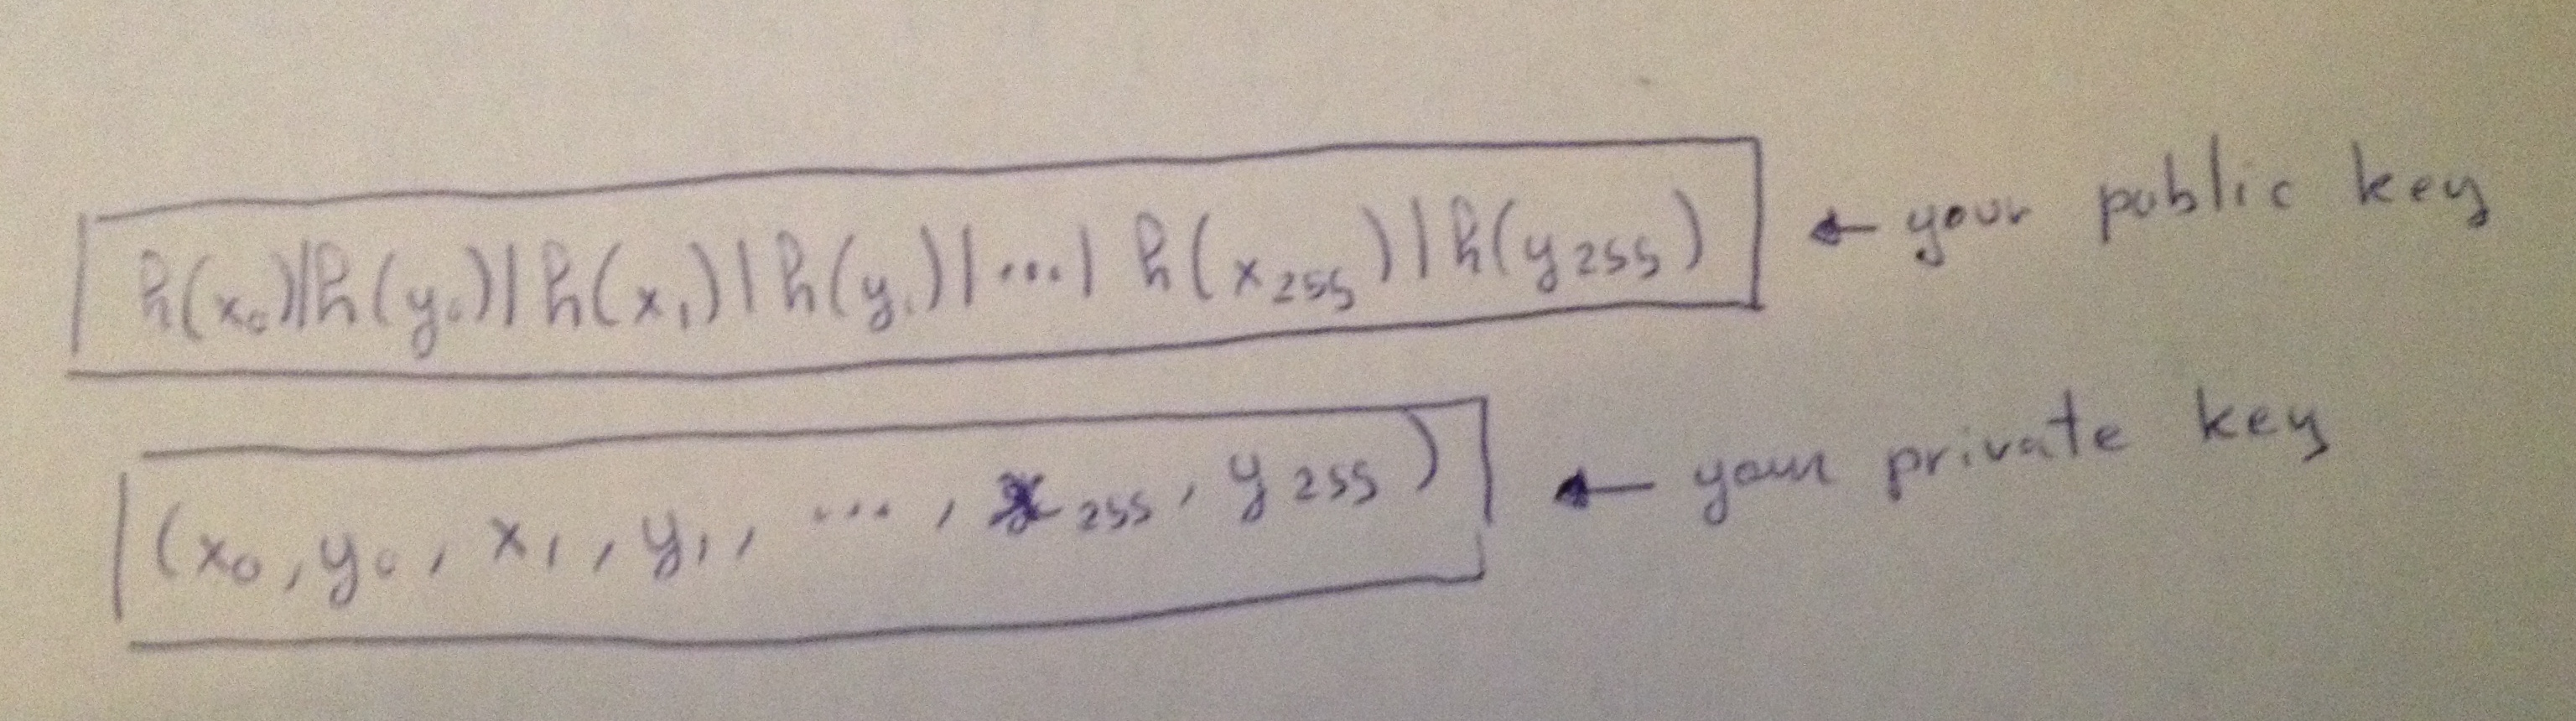 h(x₀)|h(y₀)|h(x₁)|h(y₁)|...| h(x₂₅₅)|h(y₂₅₅) ← your public key
(x₀, y₀, x₁, y₁, ..., x₂₅₅, y₂₅₅) ← your private key